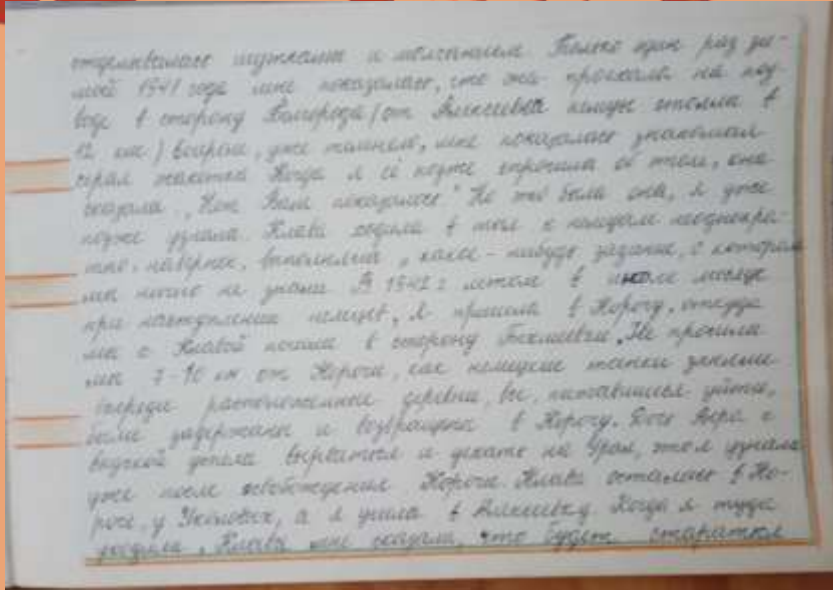 отделывалась шутками и молчанием. Только один раз зи-
мой 1941 года мне показалось, что она проехала на под-
воде в сторону Белгорода (от Алексеевки немцы стояли в
12 км) вечером, уже темнело, мне показалась знакомая
серая жакетка. Когда я её позже спросила об этом, она
сказала „Нет Вам показалось." Но это была она, я уже
позже узнала. Клава ходила в тыл к немцам неоднокра-
тно, наверное, выполняла „какое-нибудь задание, о котором
мы ничего не знали. В 1942 г летом в июле месяце
при наступлении немцев, я пришла в Корочу, откуда
мы с Клавой пошли в сторону Не прошли
мы 7-10 км от Корочи, как немецкие танки заняли
впереди расположенные деревни, все, пытавшиеся уйти,
были задержаны и возвращены в Корочу. Вера с
внучкой успела вырваться и уехать на Урал, это я узнала
уже после освобождения Корочи. Клава осталась в Ко-
роче, у а я ушла в Алексеевку. Когда я туда
уходила, Клава мне сказала, что будет стараться